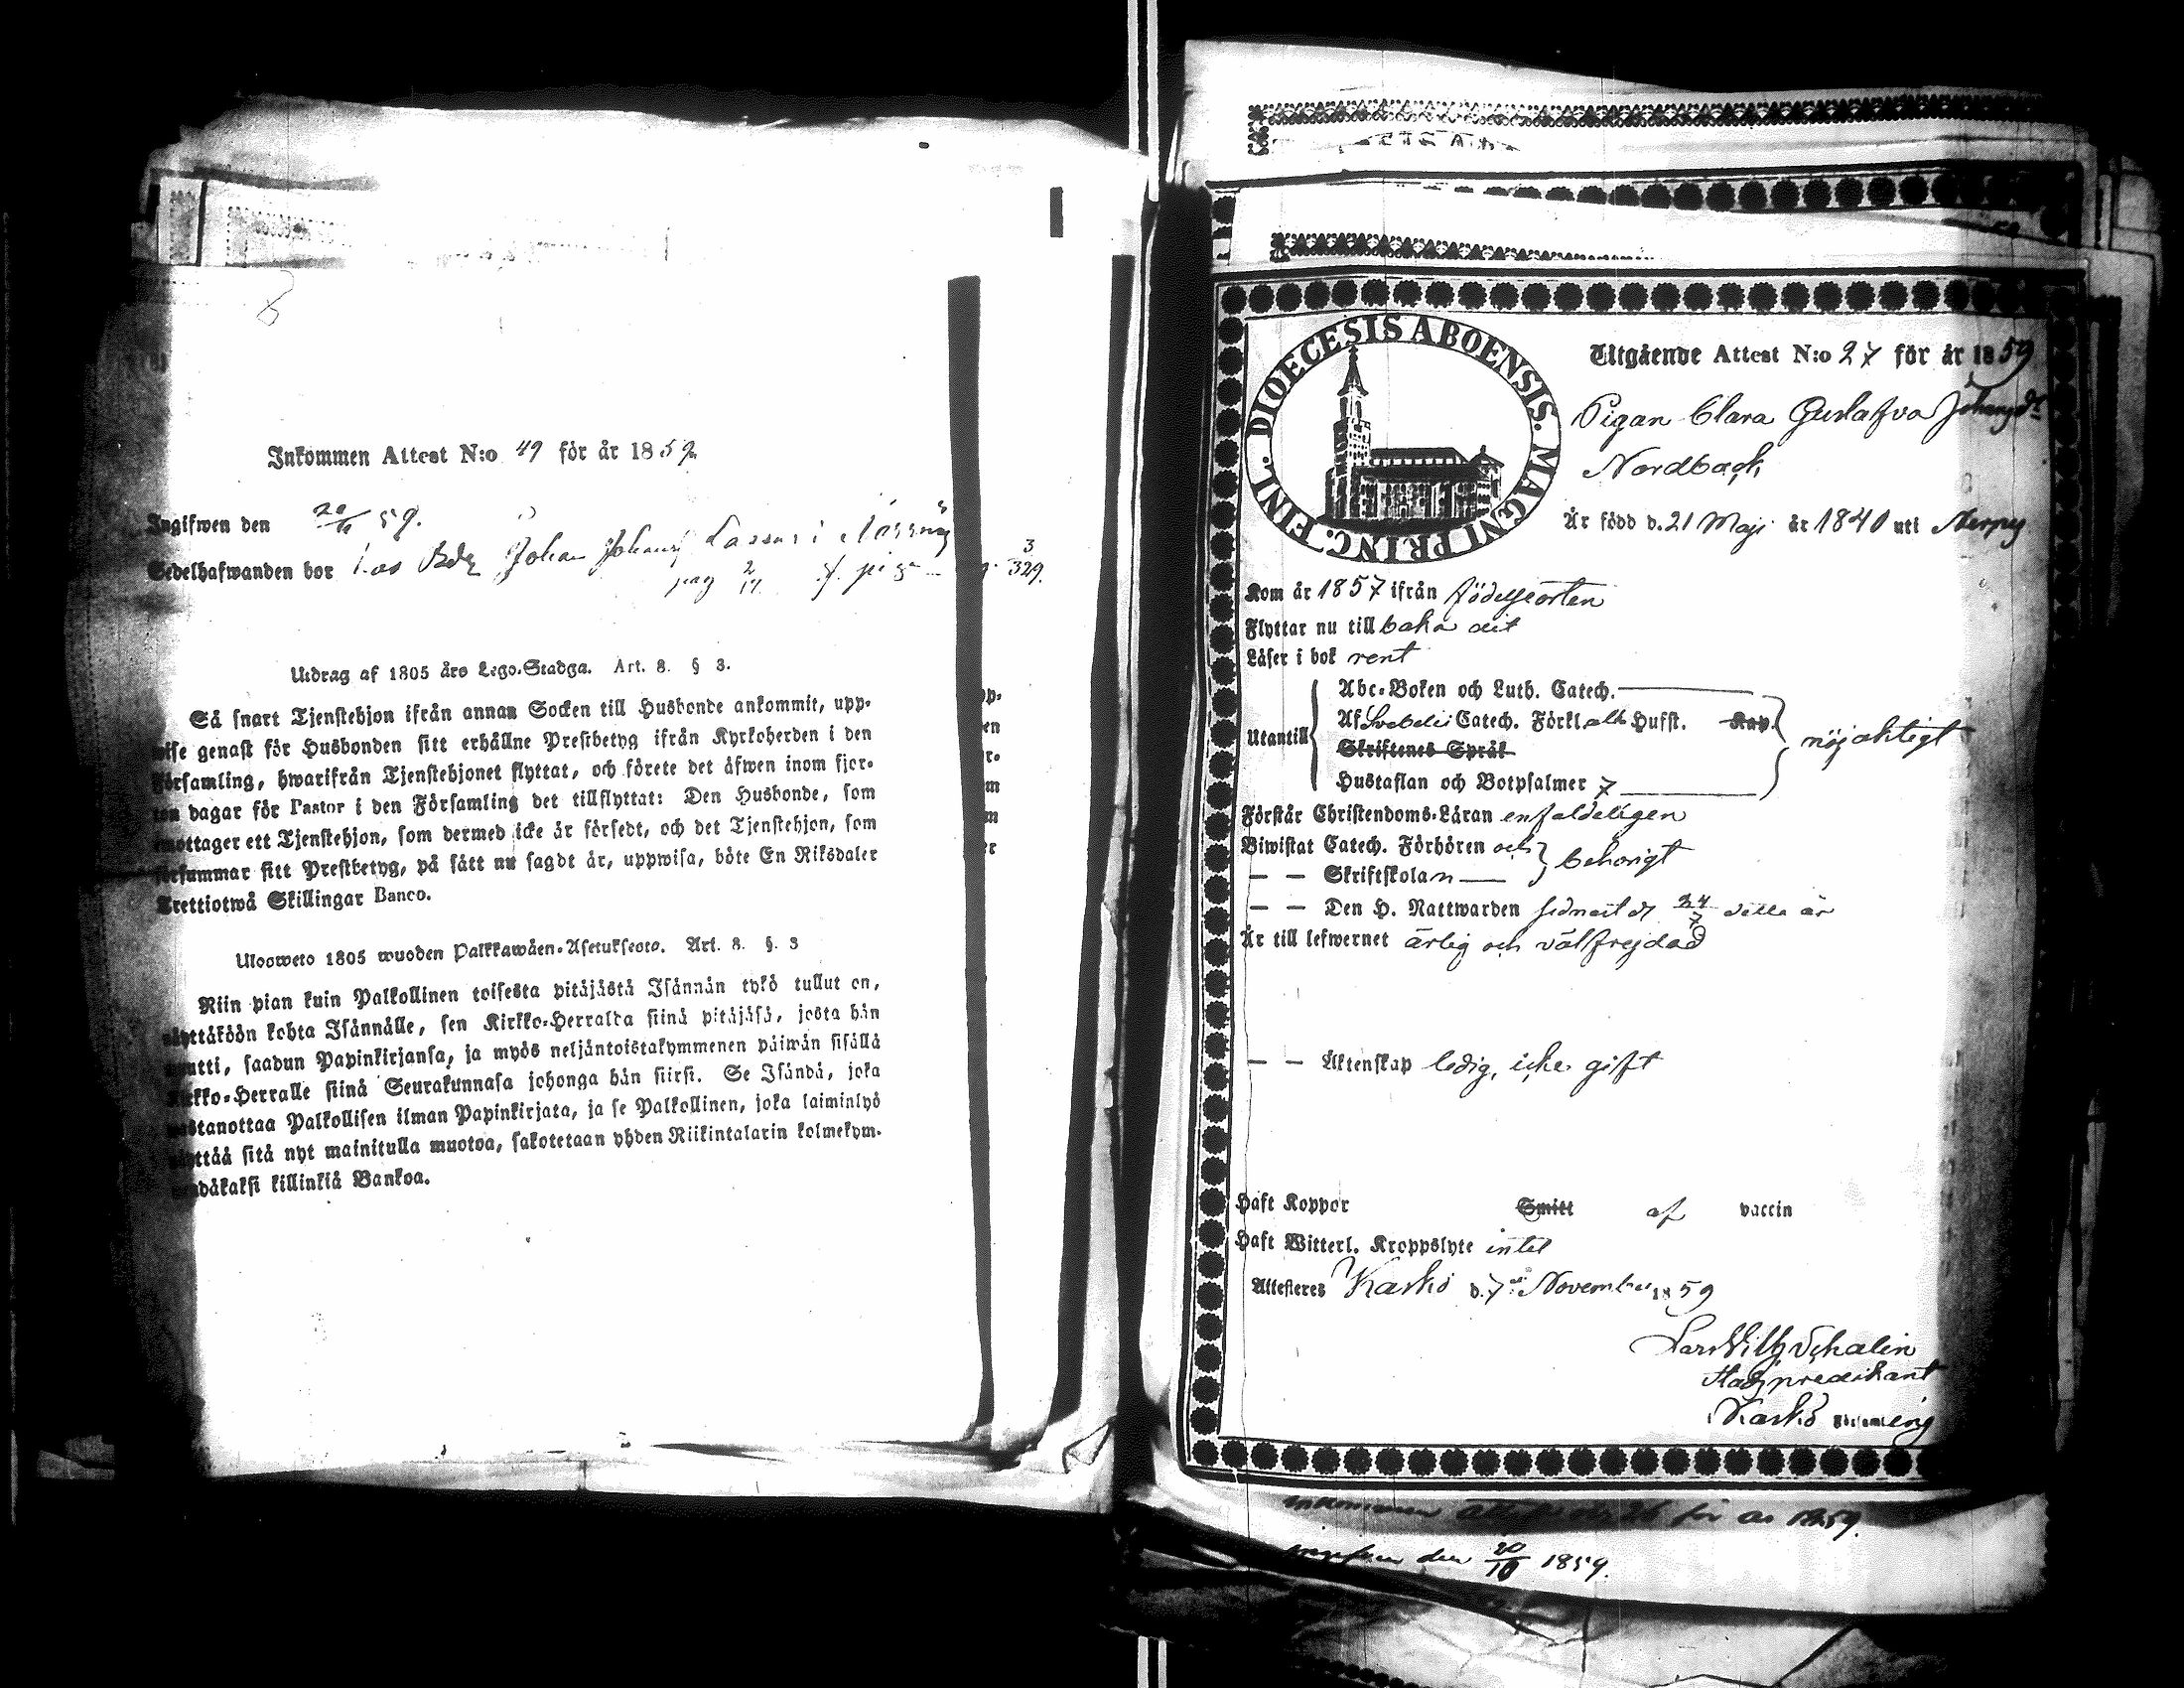 Inkommen Attest N:o 49 för år 1859.
Ingifwen den 20/11 59.
Sedelhafwanden bor hos Bdn Johan Johans Lassus i
pag 2/17. 3/329.
Utdrag af 1805 års Lego-Stadga. Art. 8. § 3.
Så snart Tjenstehjon ifrån annan Socken till Husbonde ankommit, upp-
wise genast för Husbonden sitt erhållne Prestbetyg ifrån Kyrkoherden i den
Församling, hwarifrån Tjenstehjonet flyttat, och förete det äfwen inom fjor-
ton dagar för Pastor i den Församling det tillflyttat: Den Husbonde, som
emottager ett Tjenstehjon, som dermed icke är försedt, och det Tjenstehjon, som
försummar sitt Prestbetyg, på sätt nu sagdt är, uppwisa, böte En Riksdaler
Trettiotwå Skillingar Banco.
Uloosweto 1805 wuoden Palkkawäen-Asetuksesta. Art. 8. §. 3
Niin pian kuin Palkollinen toisesta pitäjästä Isännän tykö tullut on,
näyttäköön kohta Isännälle, sen Kirkko-Herralda siinä pitäjäsä, josta hän
muutti, saadun Papinkirjansa, ja myös neljäntoistakymmenen päiwän sisällä
Kirkko-Herralle siinä Seurakunnasa johonga hän siirsi. Se Isändä, joka
wastanottaa Palkollisen ilman Papinkirjata, ja se Palkollinen, joka laiminlyö
näyttää sitä nyt mainitulla muotoa, sakotetaan yhden Riikintalarin kolmekym-
mendäkaksi killinkiä Bankoa.
DIOECESIS ABOENSIS. MAGNI PRINC. FINL.
Utgående Attest N:o 27 för år 1859
Pigan Clara Gustafva Johansdr
Nordback
Är född d. 21 Maji år 1840 uti Nerpes
Kom år 1857 ifrån födelseorten
Flyttar nu tillbaka dit
Läser i bok rent
Utantill
Abc-Boken och Luth. Catech.
Af Svebelii Catech. Förkl. allt Hufst. Kap.
Skriftenes Språk
Hustaflan och Botpsalmer 7
nöjaktigt
Förstår Christendoms-Läran enfaldeligen
Biwistat Catech. Förhören och
— — Skriftskolan
behörigt
— — Den H. Nattwarden sednast d. 24/7 detta år
Är till lefwernet ärlig och välfrejdad
— — Äktenskap ledig, icke gift
Haft Koppor Smitt af vaccin
Haft Witterl. Kroppslyte intet
Attesteres Kaskö d. 7de November 1859
Lars Wilh Schalin
Stadspredikant
i Kaskö Församling
Inkommen attest No 26 för år 1859.
Ingifven den 20/10 1859.